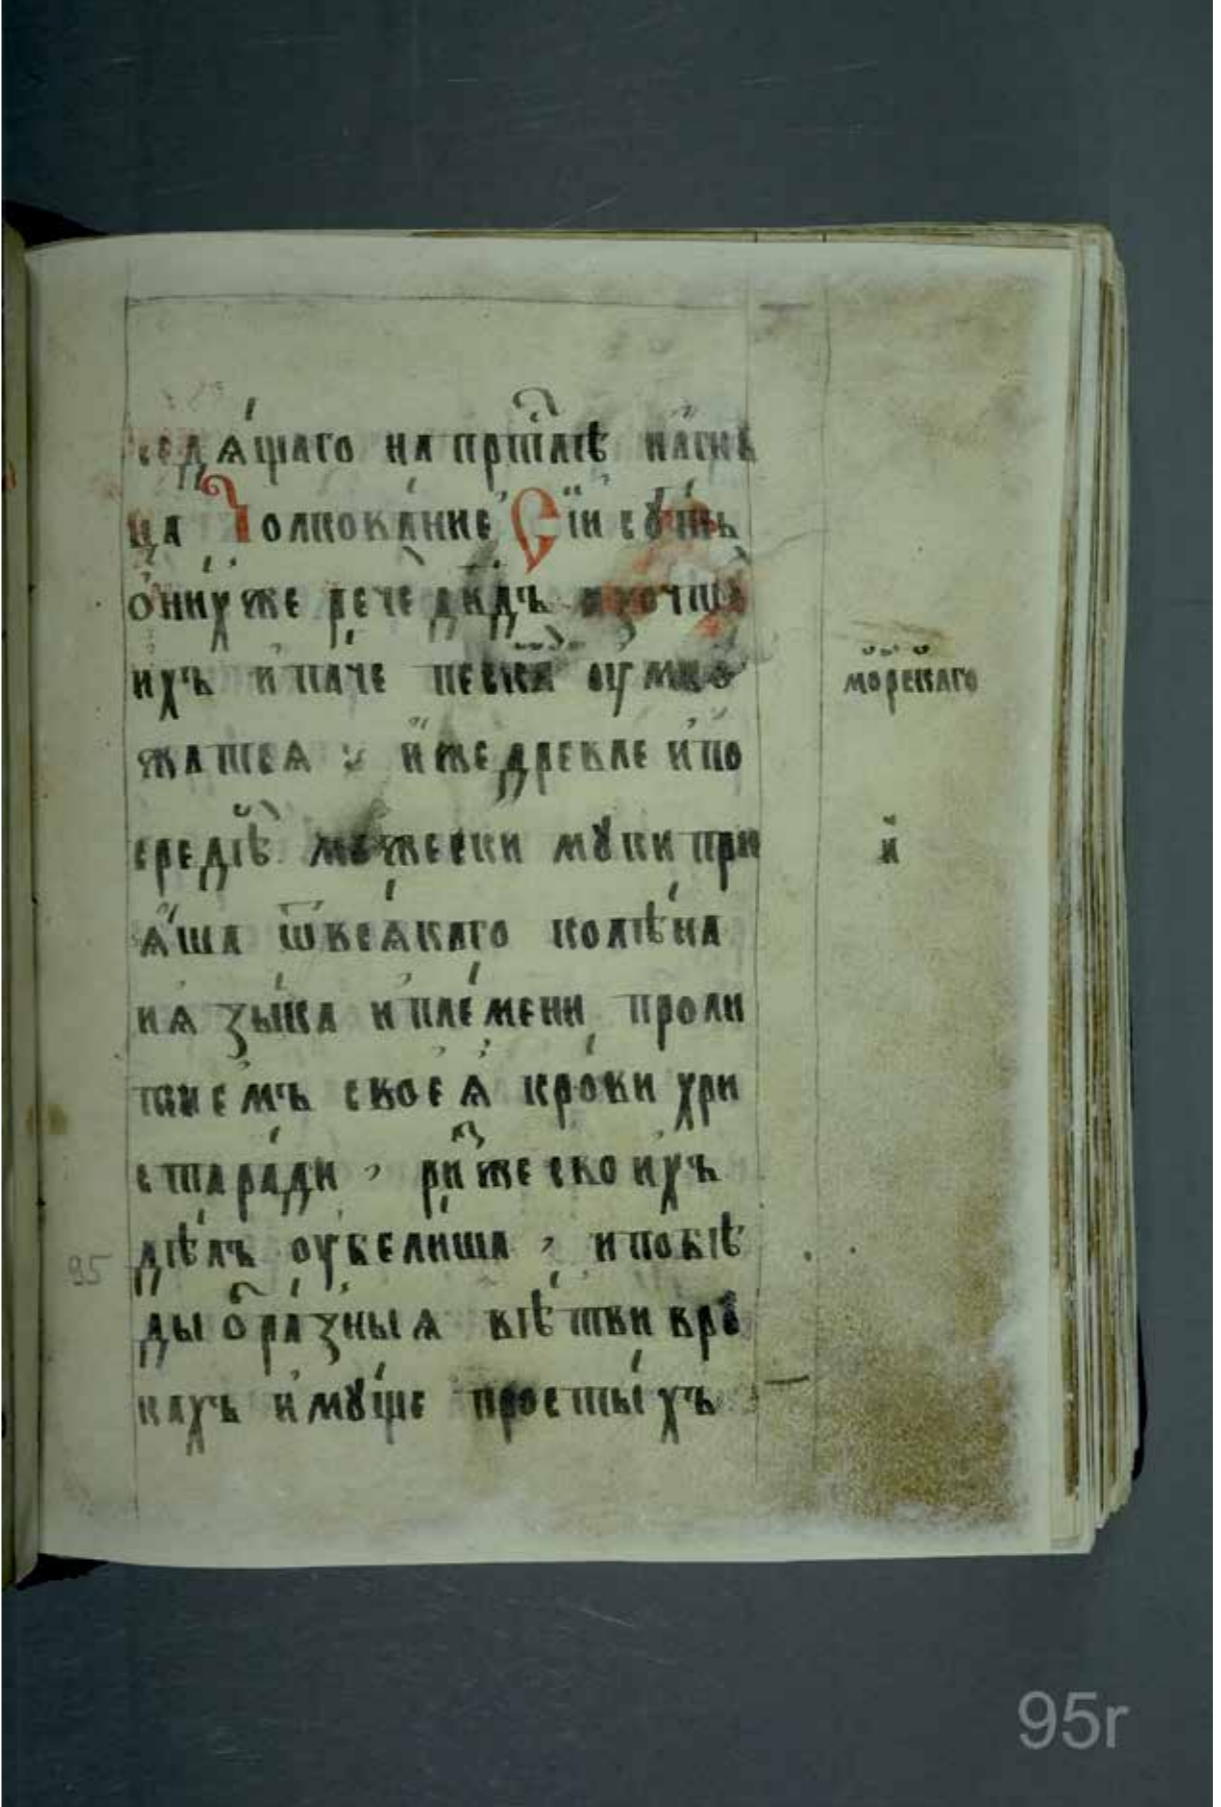 седѧщаго на прт҃лѣ и агн
ца Толкованиє Сїи сꙋть
ѻнихже рече дв҃дъ
ихъ и паче песка оумно
морскаго
жатсѧ иже древле и по
средѣ мꙋжески мꙋки при
и
ѧша ѿ всѧкаго колѣна
и ѧзыка и племени проли
тиемъ своеѧ крови хри
ста ради , ри҃же своихъ
дѣлъ оубелиша , и побѣ
95
ды ѻб҃разныѧ вѣтви врꙋ
кахъ имꙋще простыхъ
95r